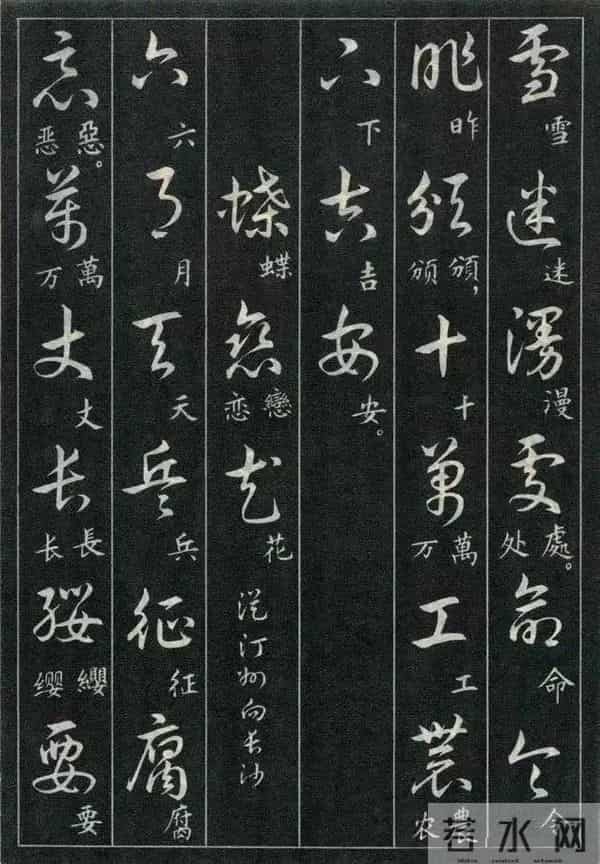 雪 雪 迷 迷 漫 漫 處 處。 处 命 命 令 令
昨 昨 頒 頒， 颁 十 十 萬 萬 万 工 工 農 農 农
下 下 吉 吉 安 安。
蝶 蝶 戀 戀 恋 花 花 從汀州向长沙
六 六 月 月 天 天 兵 兵 征 征 腐 腐
惡 惡。 恶 萬 萬 万 丈 丈 长 長 长 纓 纓 缨 要 要
若水网